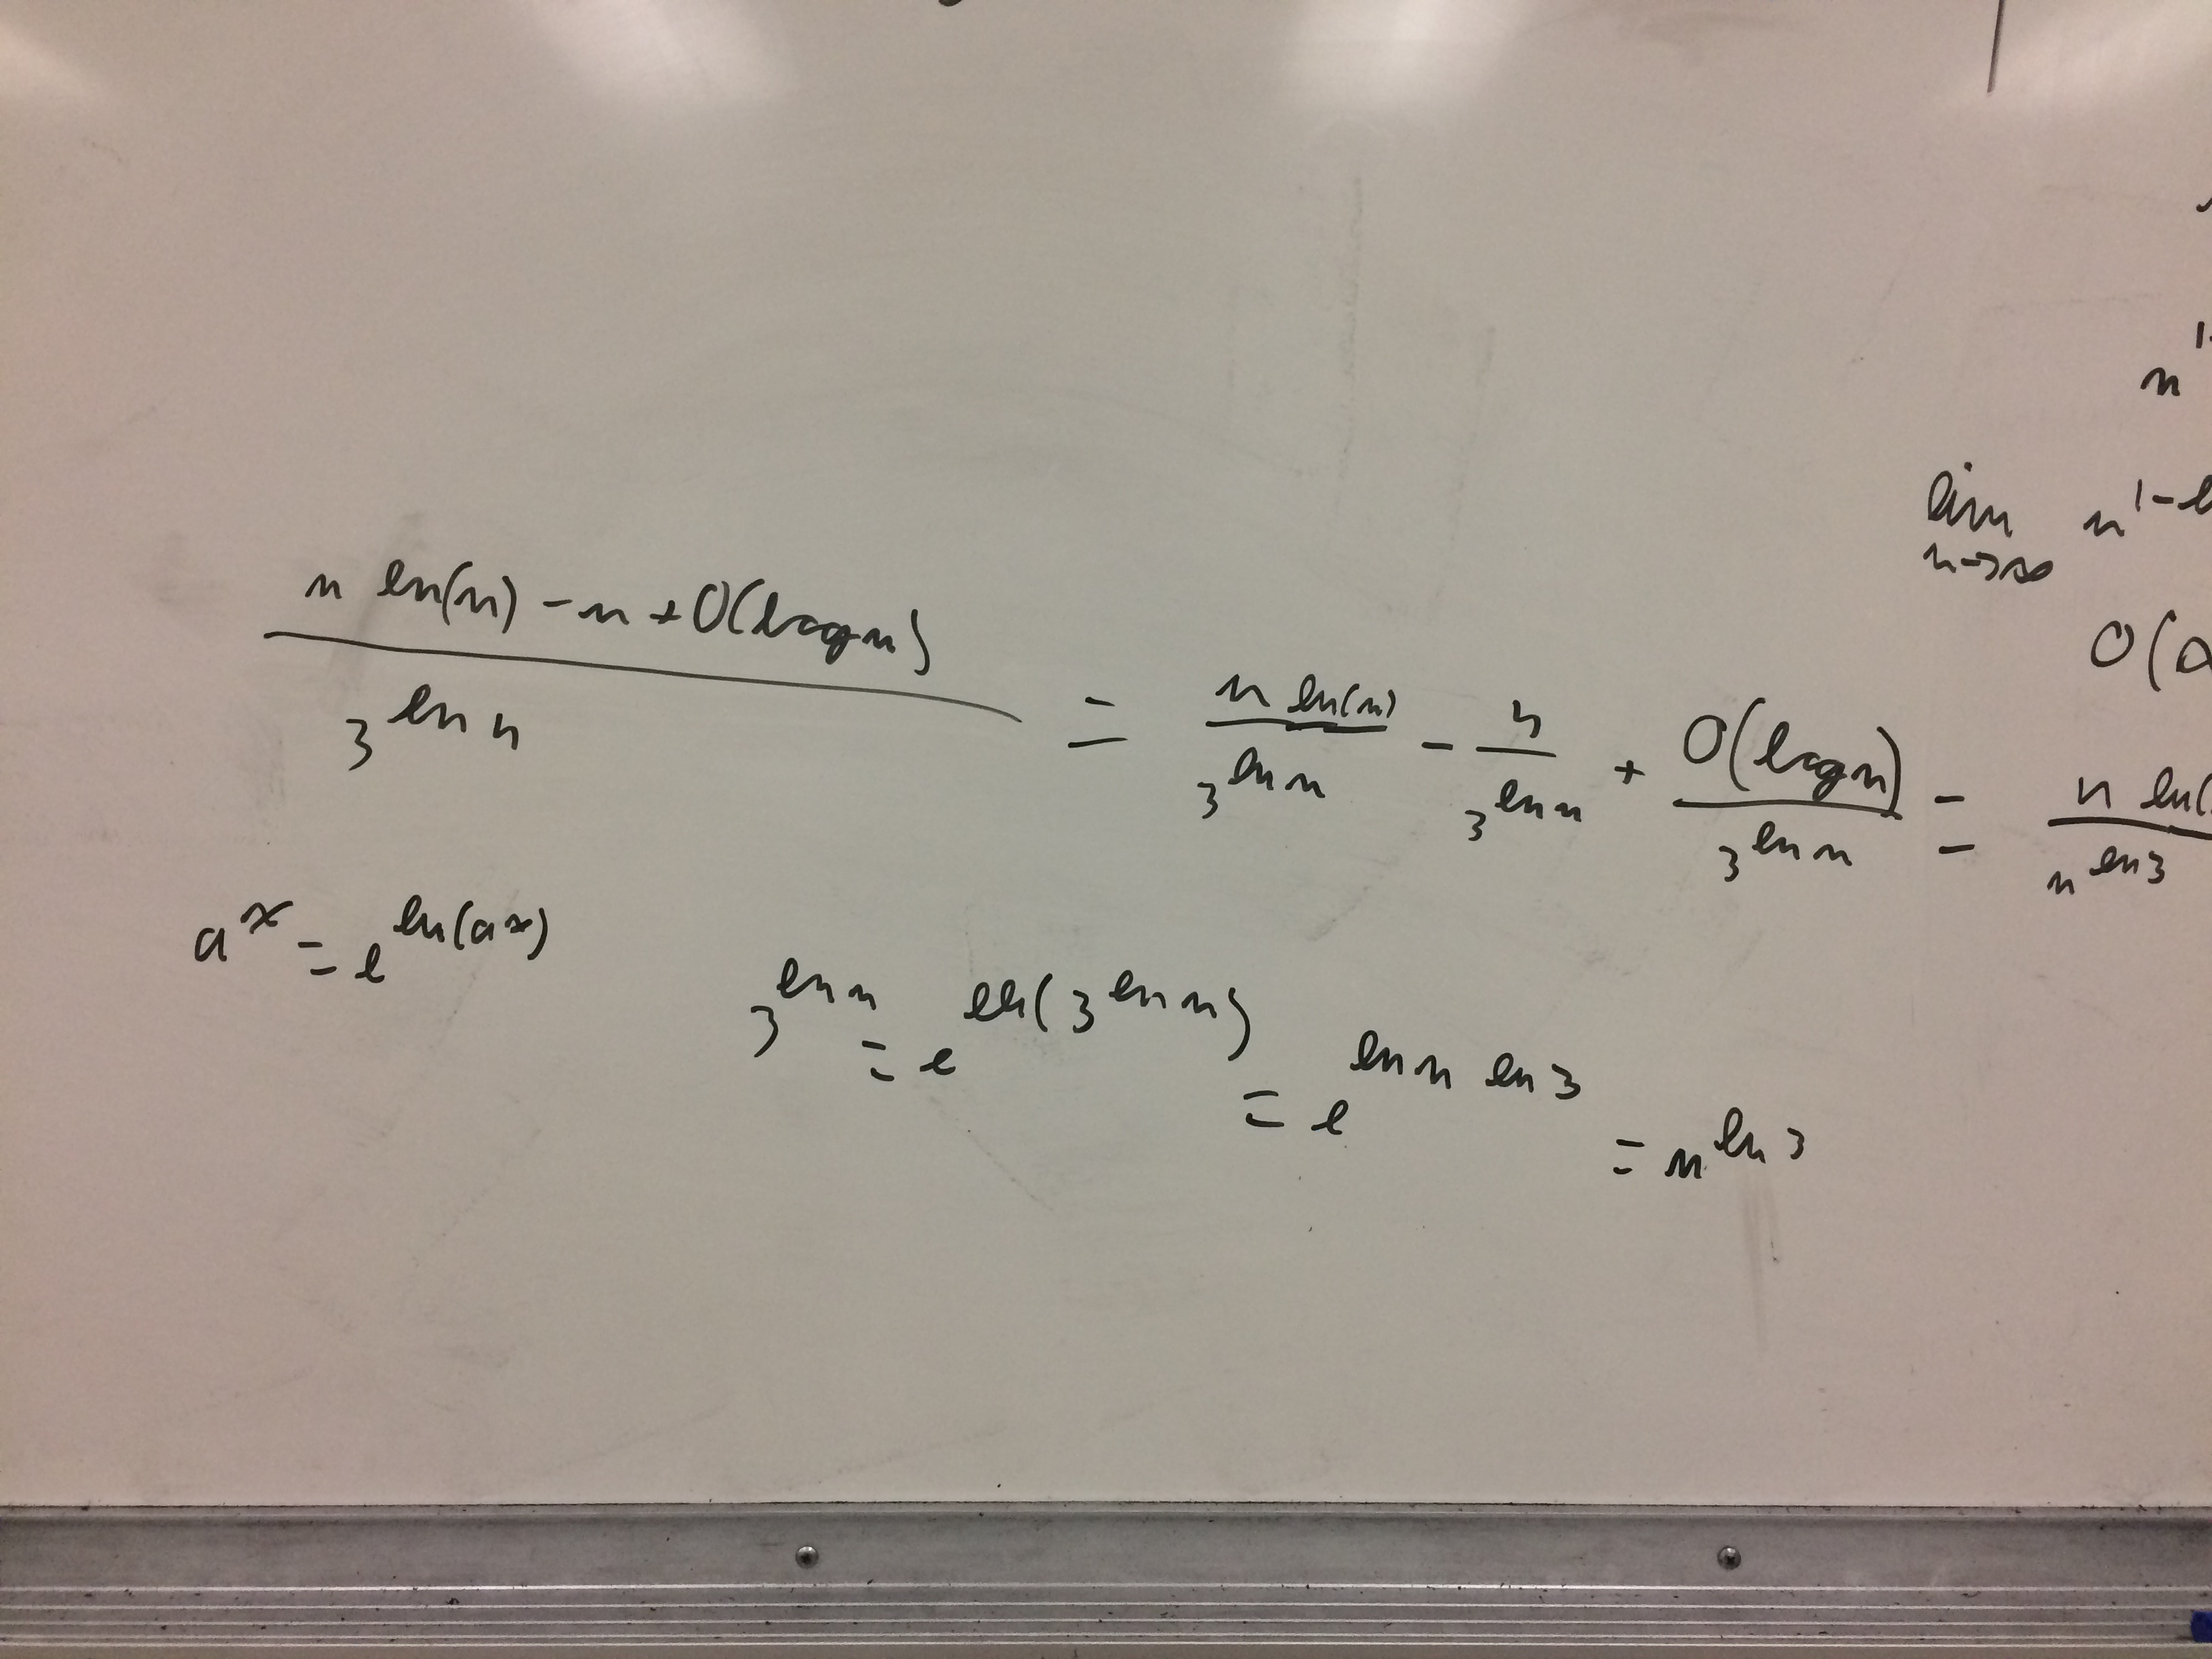 n
lim n^{1-
n→∞
O(
\frac{n ln(n) - n + O(log n)}{3^{ln n}} = \frac{n ln(n)}{3^{ln n}} - \frac{n}{3^{ln n}} + \frac{O(log n)}{3^{ln n}} = \frac{n ln(}{n^{ln 3}}
a^x = e^{ln(a^x)}
3^{ln n} = e^{ln(3^{ln n})} = e^{ln n ln 3} = n^{ln 3}